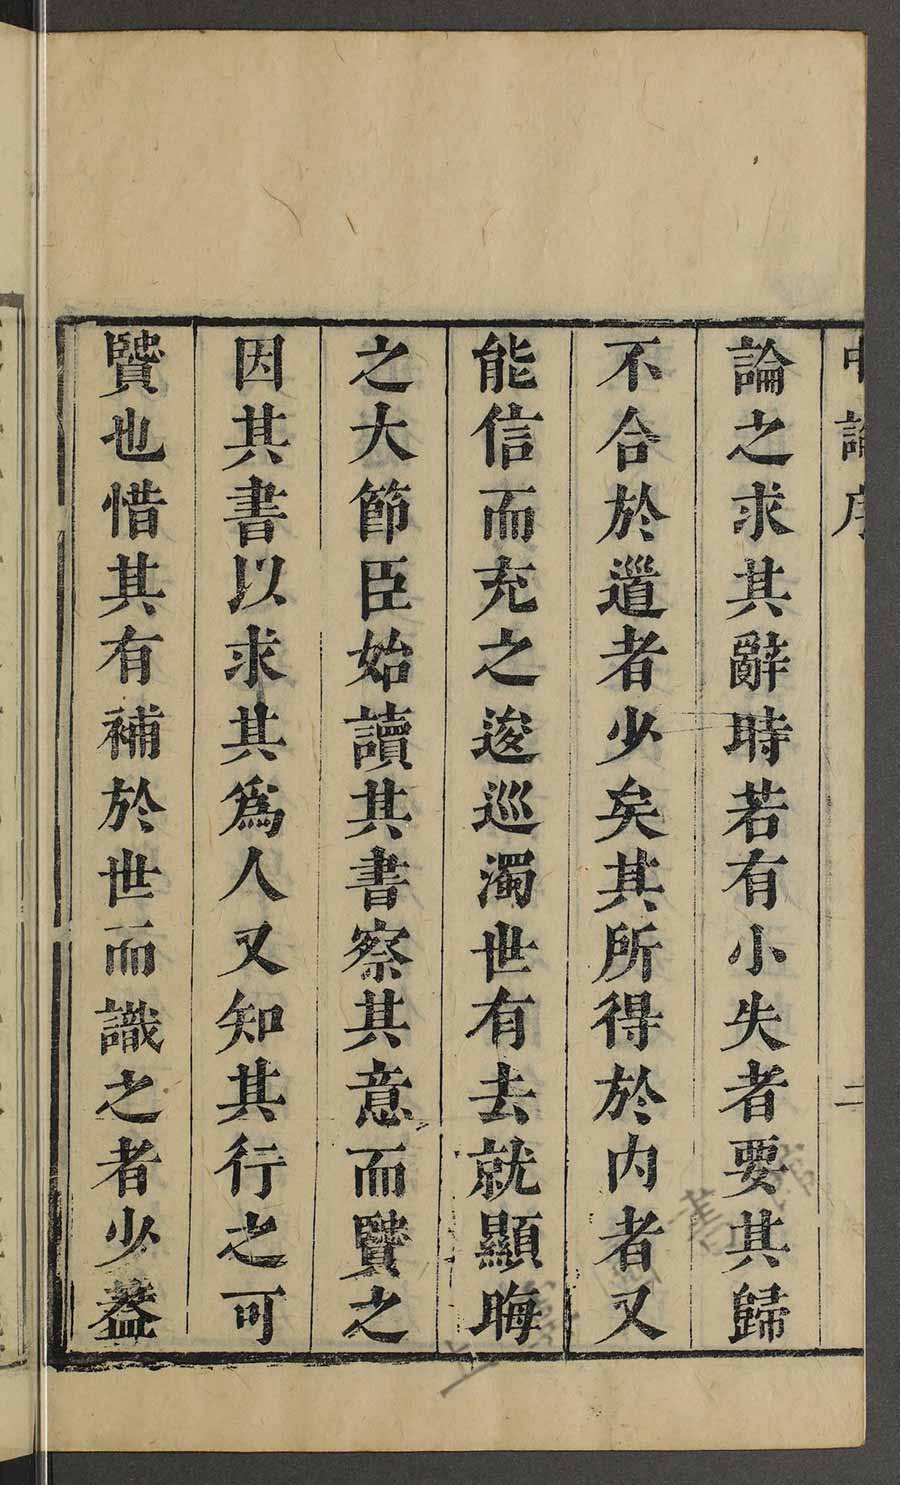 中論序 二
論之求其辭時若有小失者要其歸
不合於道者少矣其所得於內者又
能信而充之逡巡濁世有去就顯晦
之大節臣始讀其書察其意而賢之
因其書以求其爲人又知其行之可
賢也惜其有補於世而識之者少蓋